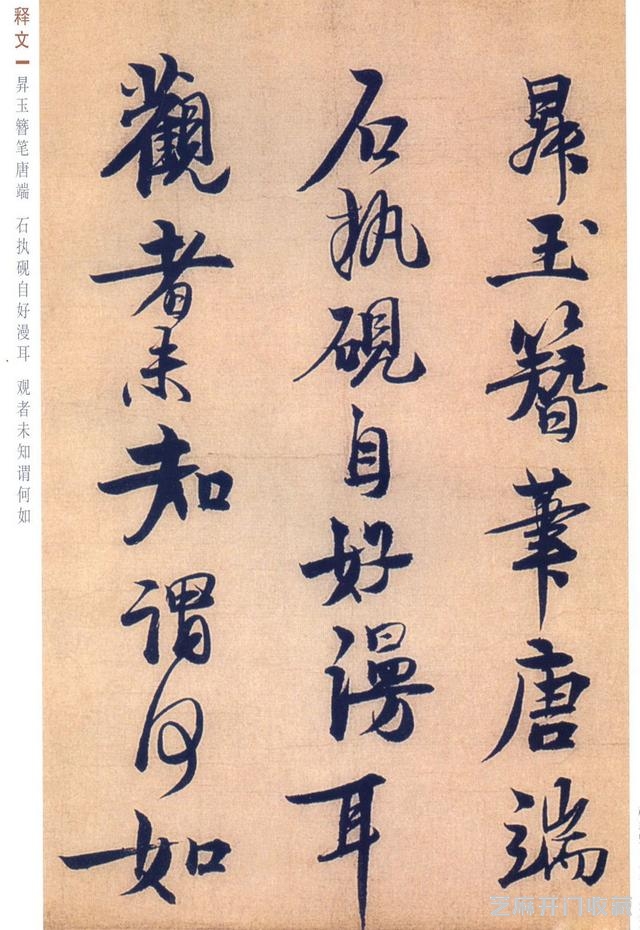 昇玉簪筆唐端
石执硯自好漫耳
觀者未知謂何如
释文
昇玉簪笔唐端 石执砚自好漫耳 观者未知谓何如
艺麻开门收藏